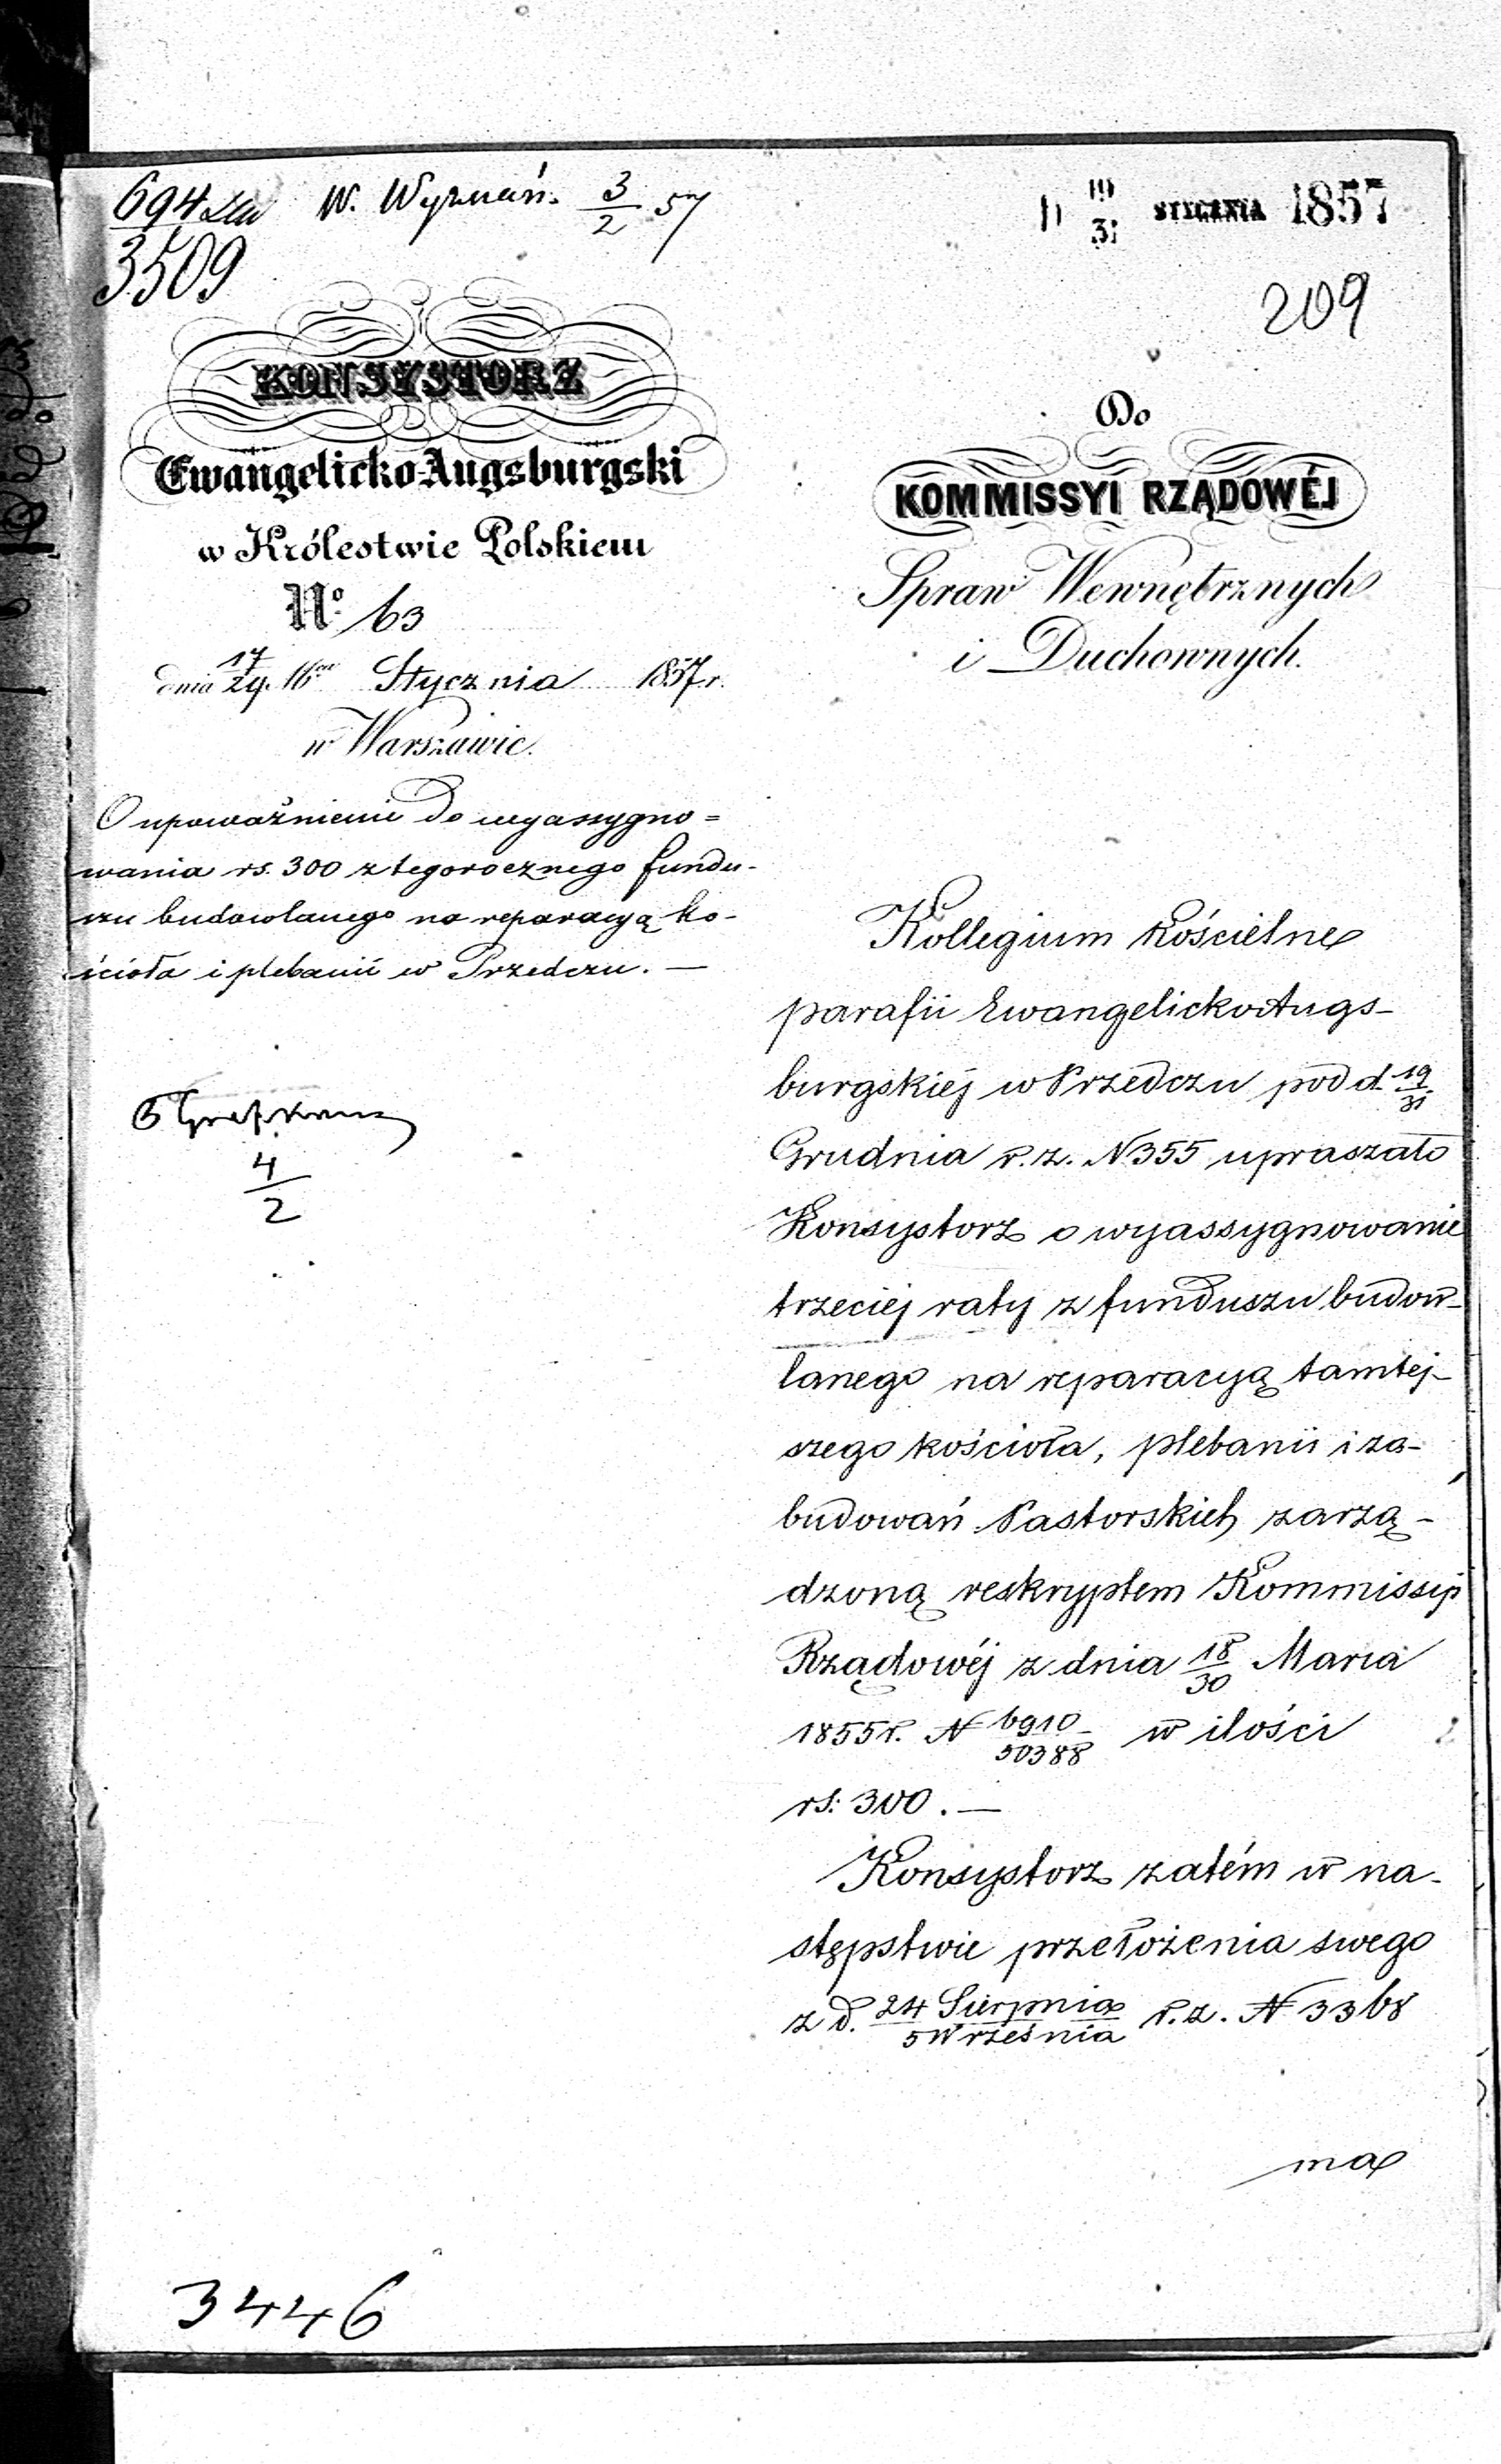 694
3509
W. Wyznań. 3/2 57
19/31 STYCZNIA 1857
209
KONSYSTORZ
Ewangelicko-Augsburgski
w Królestwie Polskiem
No. 63
dnia 17/29 Stycznia 1857 r.
w Warszawie.
O upoważnienie do wyassygno=
wania rs. 300 z tegorocznego fundu-
szu budowlanego na reparacyą ko-
ścioła i plebanii w Przedczu. —
4/2
Do
KOMMISSYI RZĄDOWÉJ
Spraw Wewnętrznych
i Duchownych.
Kollegium kościelne
parafii Ewangelicko Augs-
burgskiej w Przedczu pod d. 19/31
Grudnia r. z. N 355 upraszało
Konsystorz o wyassygnowanie
trzeciej raty z funduszu budow-
lanego na reparacyą tamtej-
szego kościoła, plebanii i za-
budowań Pastorskich zarzą-
dzoną reskryptem Kommissyi
Rządowéj z dnia 18/30 Marca
1855 r. N 6910/50388 w ilości
rs: 300. —
Konsystorz zatém w na-
stępstwie przełożenia swego
z d. 24 Sierpnia/5 Września r. z. N 3368
ma
3446